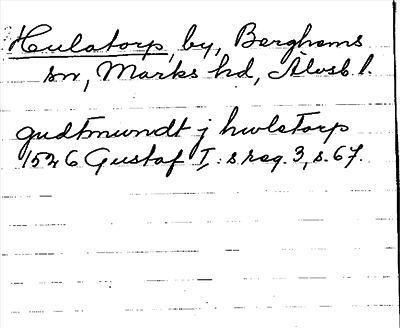 Hulatorp, by, Berghems
sn, Marks hd, Älvsb. l.
gudtmundt j hwlstorp
1526 Gustaf I:s reg. 3, s. 67.